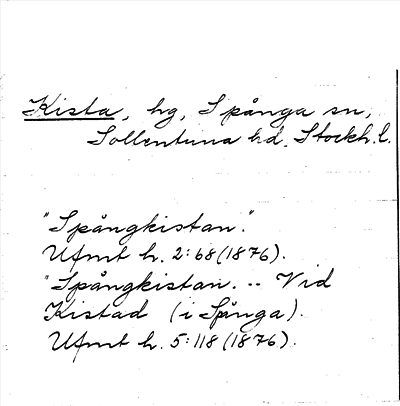 Kista, hg, Spånga sn,
Sollentuna hd, Stockh. l.
"Spångkistan."
Ufmt h. 2:68 (1876).
"Spångkistan. -- Vid
Kistad (i Spånga).
Ufmt h. 5:118 (1876).